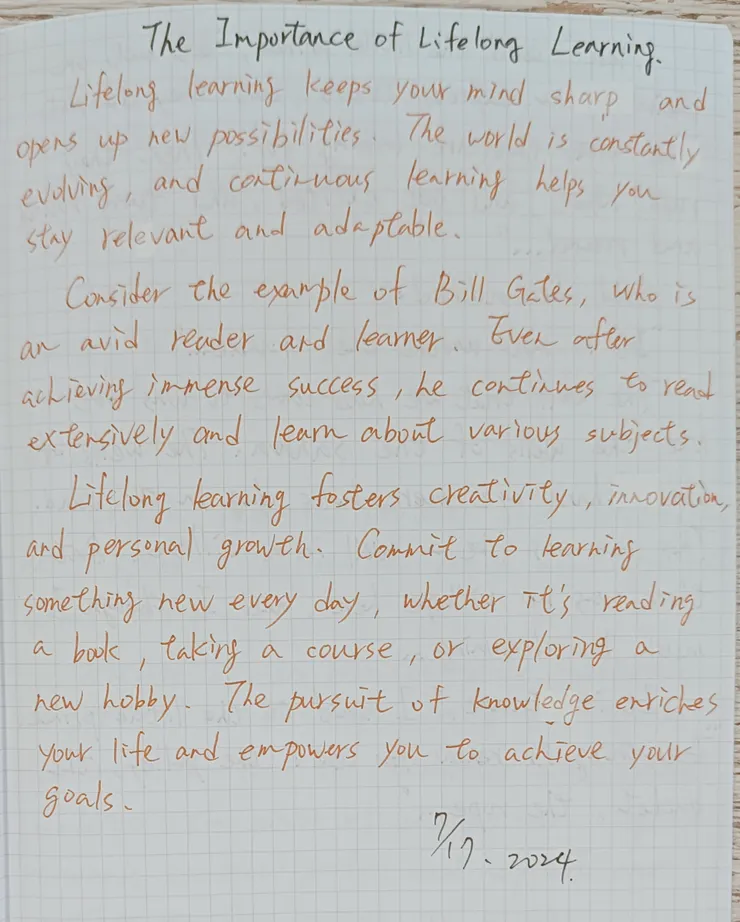 The Importance of Lifelong Learning.
Lifelong learning keeps your mind sharp and
opens up new possibilities. The world is constantly
evolving, and continuous learning helps you
stay relevant and adaptable.
Consider the example of Bill Gates, who is
an avid reader and learner. Even after
achieving immense success, he continues to read
extensively and learn about various subjects.
Lifelong learning fosters creativity, innovation,
and personal growth. Commit to learning
something new every day, whether it's reading
a book, taking a course, or exploring a
new hobby. The pursuit of knowledge enriches
your life and empowers you to achieve your
goals.
7/17. 2024.